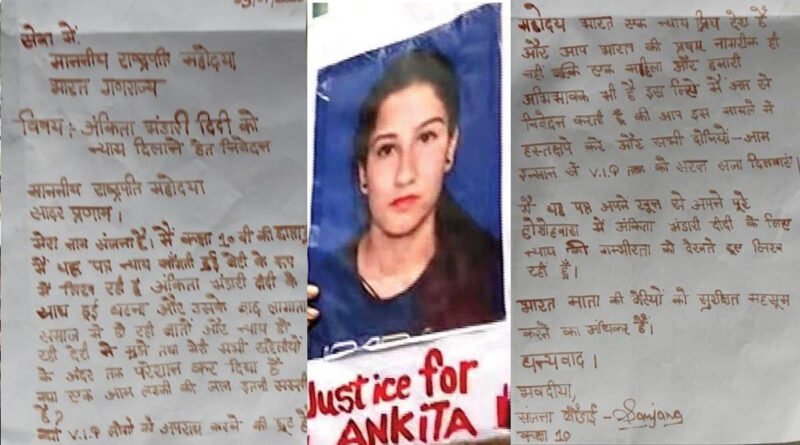 सेवा में,
माननीय राष्ट्रपति महोदया
भारत गणराज्य
विषय:- अंकिता भंडारी दिदी को
न्याय दिलाने हेतु निवेदन
माननीय राष्ट्रपति महोदया
सादर प्रणाम।
मेरा नाम संजना है। मैं कक्षा 10 वी की छात्रा
मैं यह पत्र न्याय माँगती हुई बेटी के रूप
में लिख रही हूँ अंकिता भंडारी दीदी के
साथ हुई घटना और उसके बाद लगातार
समाज में हो रही बातों और न्याय हो
रही देरी ने मुझे तथा मेरी सभी सहेलीयों
के अंदर तक परेशान कर दिया है
क्या एक आम लड़की की जान इतनी सस्ती
है?
क्या V.I.P लोगों को अपराध करने की छूट है
Justice for
ANKITA
महोदय भारत एक न्याय प्रिय देश है
और आप भारत की प्रथम नागरीक ही
नहीं बल्कि एक महिला और हमारी
अभिभावक भी है इस लिए मैं आप से
निवेदन करती हूँ की आप इस मामले में
हस्तक्षेप करे और सभी दोषियों-आम
इन्सान से V.I.P तक को सख्त सजा दिलवाएं।
मैं यह पत्र अपने खून से अपने पूरे
होशोहवास में अंकिता भंडारी दीदी के लिए
न्याय की गम्भीरता को देखते हुए लिख
रही हूँ।
भारत माता की बेटियों को सुरक्षित महसूस
करने का अधिकार है।
धन्यवाद।
भवदीया,
संजना - Sanjana
कक्षा 10